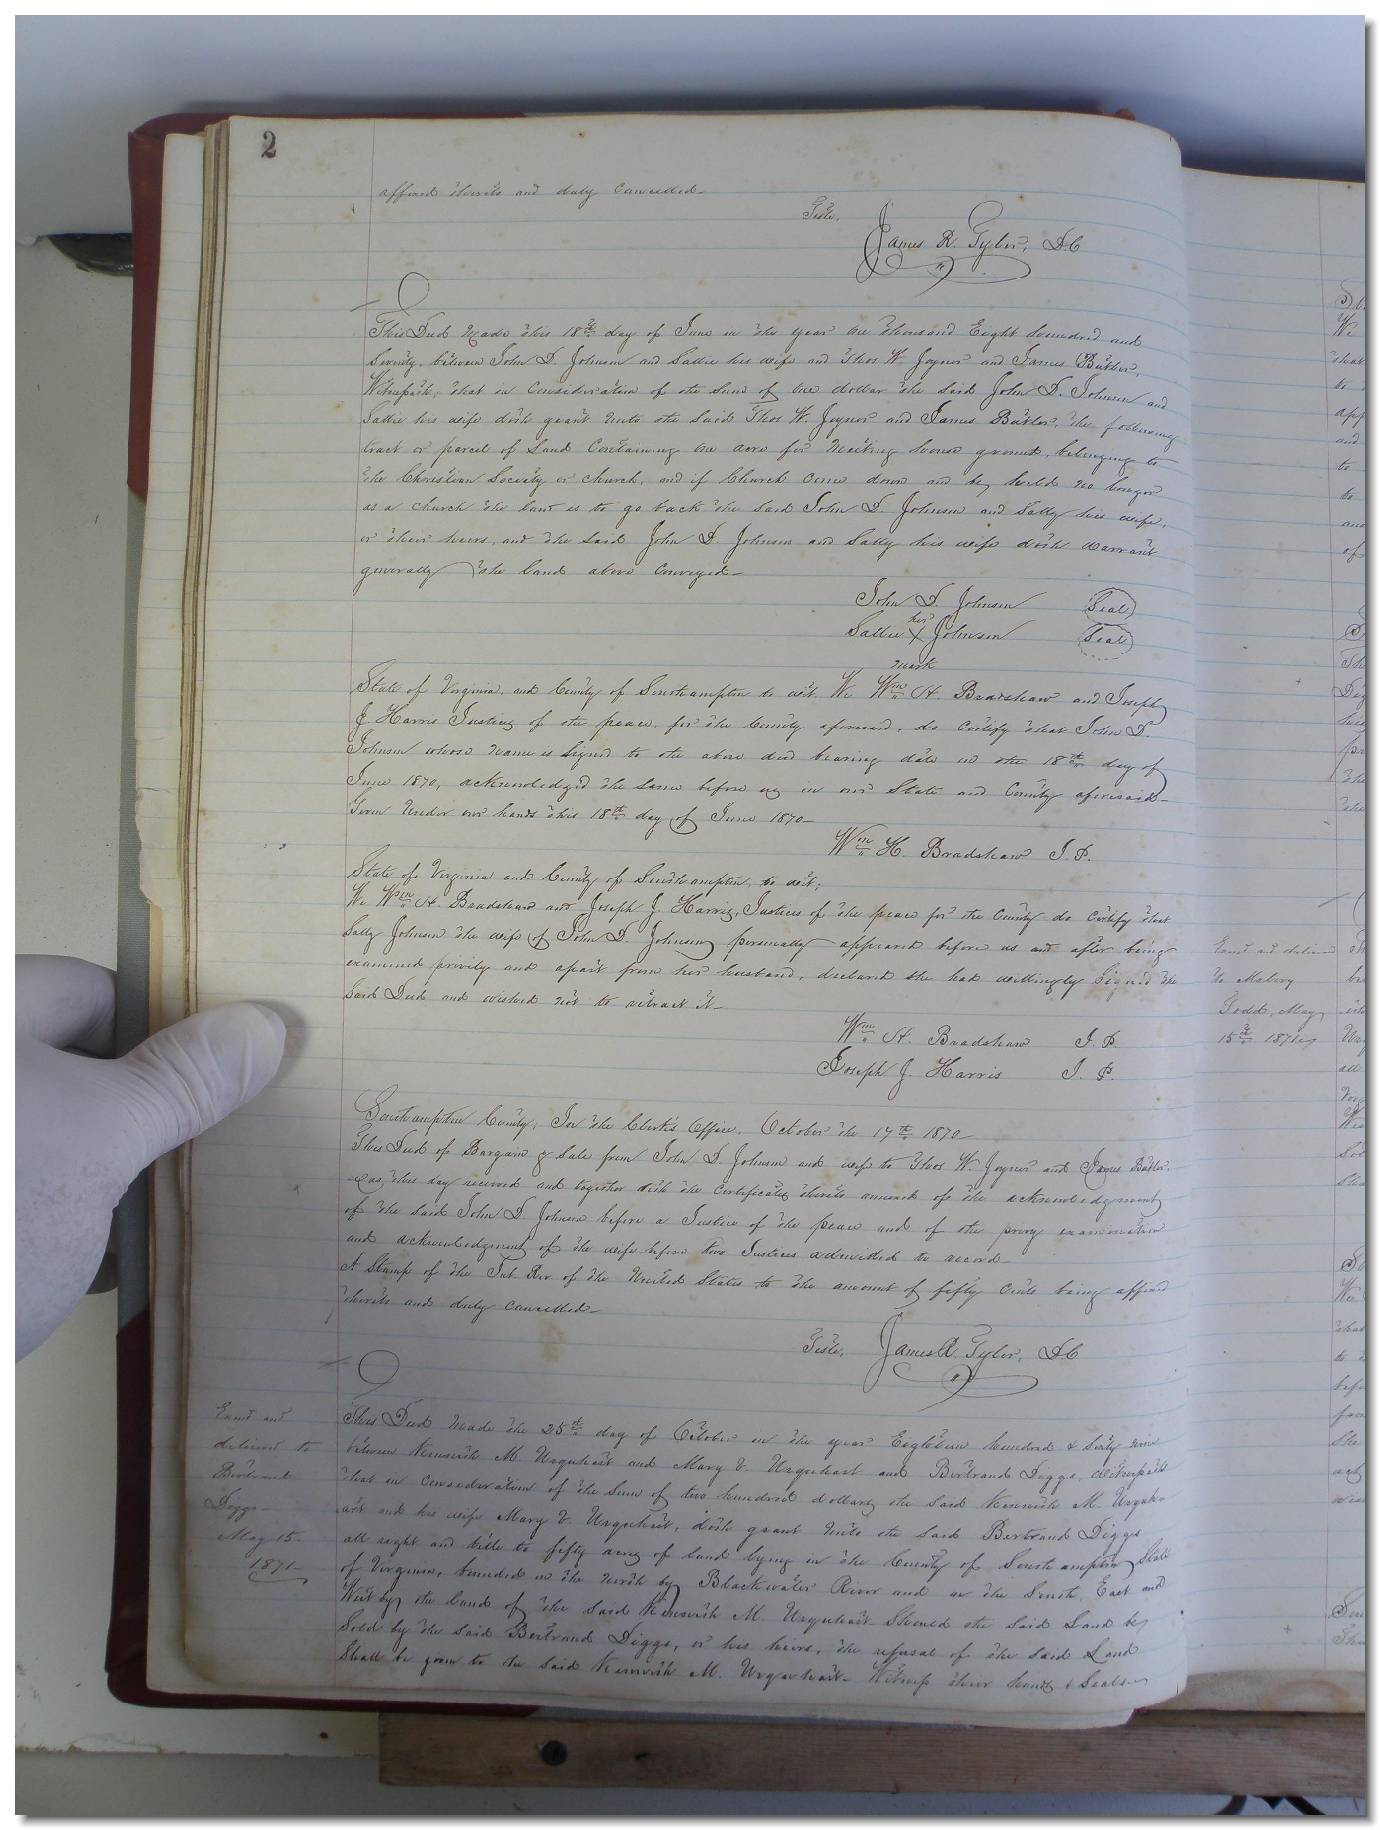 2
affixed thereto and duly cancelled—
Teste,
James R. Tyler, D.C
This Deed made this 18th day of June in the year one thousand Eight hundred and
Seventy, between John D. Johnson and Sallie his wife and Thos W. Joyner and James Butler,
Witnesseth; that in consideration of the sum of one dollar the said John D. Johnson and
Sallie his wife doth grant unto the said Thos W. Joyner and James Butler, the following
tract or parcel of Land Containing one acre for Meeting house ground, belonging to
the Christian Society or church, and if Church come down and be held no longer
as a church the land is to go back the said John D. Johnson and Sally his wife,
or their heirs, and the said John D. Johnson and Sally his wife doth warrant
generally the land above conveyed—
John D. Johnson (Seal)
her
Sallie X Johnson (Seal)
mark
State of Virginia, and County of Southampton to wit. We Wm H. Bradshaw and Joseph
J Harris Justices of the peace, for the County aforesaid, do certify that John D.
Johnson whose name is signed to the above deed bearing date on the 18th day of
June 1870, acknowledged the same before us in our State and County aforesaid—
Given under our hands this 18th day of June 1870—
Wm H. Bradshaw J.P.
State of Virginia and County of Southampton, to wit;
We Wm H. Bradshaw and Joseph J. Harris, Justices of the peace for the County do certify that
Sally Johnson the wife of John D Johnson personally appeared before us and after being
examined privily and apart from her husband, declared she had willingly signed the
said Deed and wished not to retract it—
Wm H. Bradshaw J.P.
Joseph J. Harris J.P.
Southampton County, In the Clerk's Office, October the 17th 1870—
This Deed of Bargain & Sale from John D. Johnson and wife to Thos W. Joyner and James Butler
was this day received and together with the certificates thereto annexed of the acknowledgment
of the said John D. Johnson before a Justice of the peace and of the privy examination
and acknowledgment of the wife before two Justices admitted to record—
A Stamp of the Int. Rev of the United States to the amount of fifty cents being affixed
thereto and duly cancelled—
Teste,
James R. Tyler, D.C
Examd and
delivered to
Bertrand
Diggs—
May 15—
1871—
This Deed made the 25th day of October in the year Eighteen hundred & sixty nine
between M. Urquhart and Mary V. Urquhart and Bertrand Diggs, witnesseth
that in consideration of the sum of two hundred dollars the said M. Urquh
art and his wife Mary V. Urquhart, doth grant unto the said Bertrand Diggs
all right and title to fifty acres of land lying in the County of Southampton State
of Virginia, bounded on the North by Blackwater River and on the South, East and
West by the land of the said M. Urquhart Should the said Land be
Sold by the said Bertrand Diggs, or his heirs, the refusal of the said Land
Shall be given to the said M. Urquhart— Witness their hands & Seals—
Examd and delivered
to Mallory
Todd, May
15th 1871